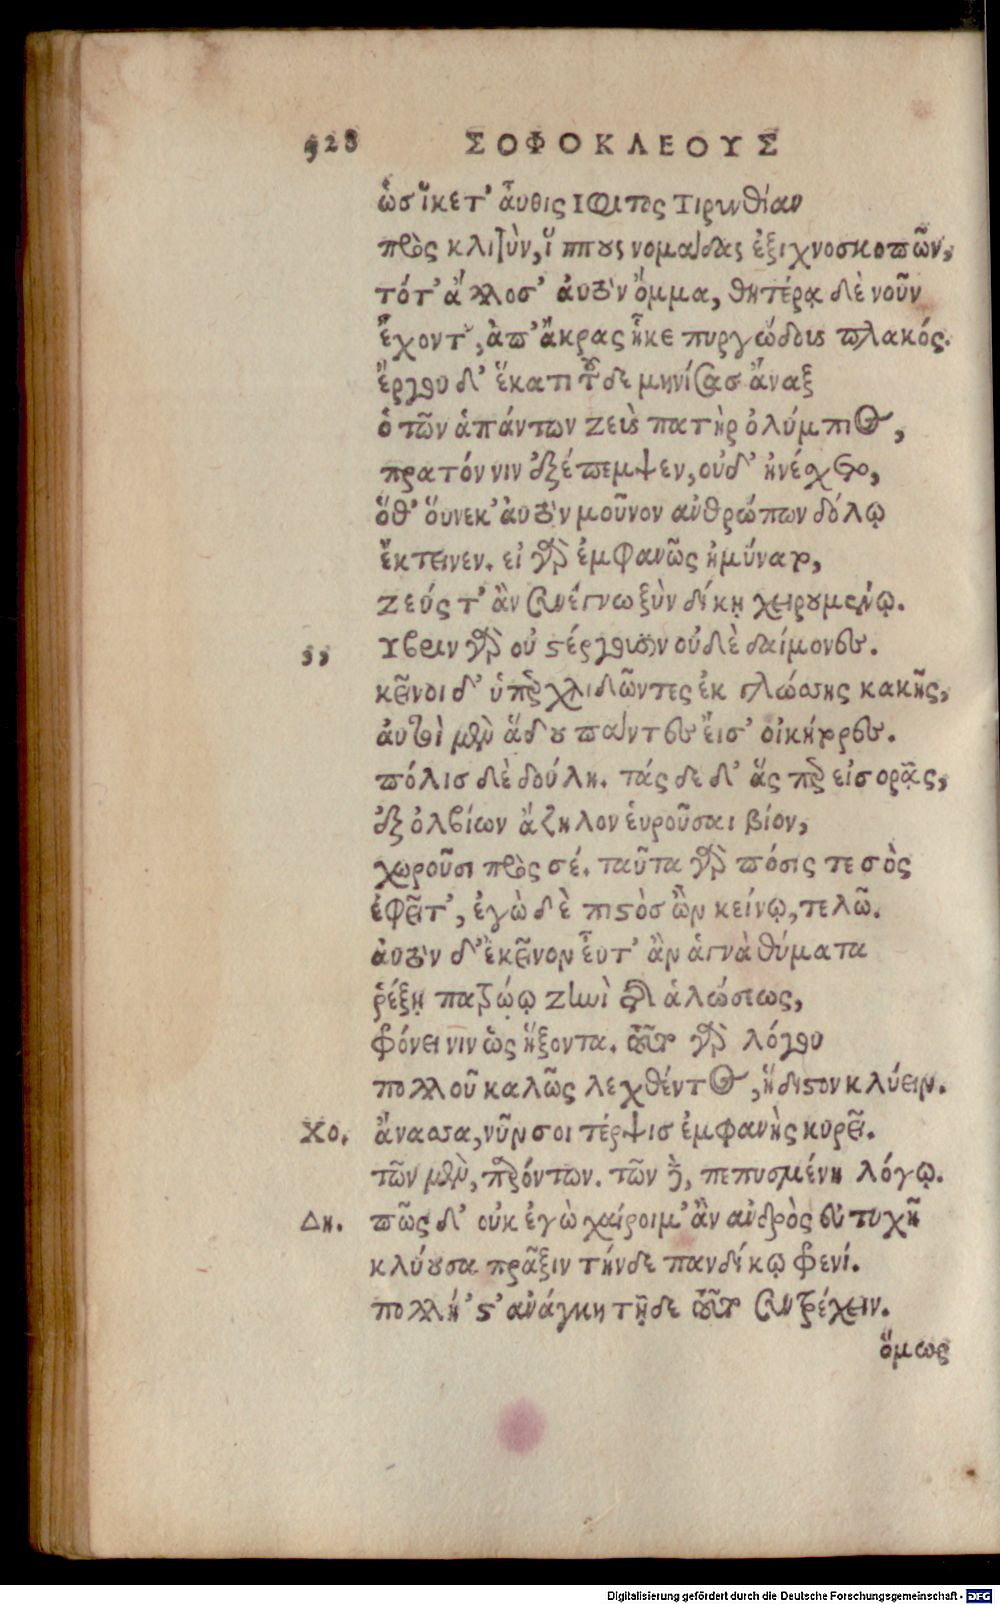 528 ΣΟΦΟΚΛΕΟΥΣ
ὡσ ἵκετ' αὖθις Ιφιτος Τιρυνθίαν
πρὸς κλιτὺν, ἵππους νομάδας ἐξιχνοσκοπῶν,
τότ' ἄλλοσ' αὐτὸν ὄμμα, θητέρᾳ δὲ νοῦν
ἔχοντ', ἀπ' ἄκρας ἧκε πυργώδους πλακός.
ἔργου δ' ἕκατι τοῦδε μηνίσας ἄναξ
ὁ τῶν ἁπάντων Ζεὺς πατὴρ ὀλύμπιος,
πρατόν νιν ἐξέπεμψεν, οὐδ' ἠνέσχετο,
ὅθ' οὕνεκ' αὐτὸν μοῦνον ἀνθρώπων δόλῳ
ἔκτεινεν. εἰ γὰρ ἐμφανῶς ἠμύνατο,
Ζεύς τ' ἂν συνέγνω ξὺν δίκῃ χειρουμένῳ.
,, Υβριν γὰρ οὐ στέργουσιν οὐδὲ δαίμονες.
κεῖνοι δ' ὑπερχλιδῶντες ἐκ γλώσσης κακῆς,
αὐτοὶ μὲν ἅδου πάντες εἴσ' οἰκήτορες.
πόλισ δὲ δούλη. τάς δε δ' ἅς περ εἰσορᾷς,
ἐξ ὀλβίων ἄζηλον εὑροῦσαι βίον,
χωροῦσι πρὸς σέ. ταῦτα γὰρ πόσις τε σὸς
ἐφεῖτ', ἐγὼ δὲ πιστὸσ ὢν κείνῳ, τελῶ.
αὐτὸν δ' ἐκεῖνον εὖτ' ἂν ἁγνὰ θύματα
ῥέξῃ πατρῴῳ Ζηνὶ τῆς ἁλώσεως,
φρόνει νιν ὡς ἥξοντα. τοῦτο γὰρ λόγου
πολλοῦ καλῶς λεχθέντος, ἥδιστον κλύειν.
Χο. ἄνασσα, νῦν σοι τέρψισ ἐμφανὴς κυρεῖ.
τῶν μὲν, παρόντων. τῶν δὲ, πεπυσμένη λόγῳ.
Δη. πῶς δ' οὐκ ἐγὼ χαίροιμ' ἂν ἀνδρὸς εὐτυχῆ
κλύουσα πρᾶξιν τήνδε πανδίκῳ φρενί.
πολλή 'στ' ἀνάγκη τῇδε τοῦτο συντρέχειν.
ὅμως
Digitalisierung gefördert durch die Deutsche Forschungsgemeinschaft - DFG